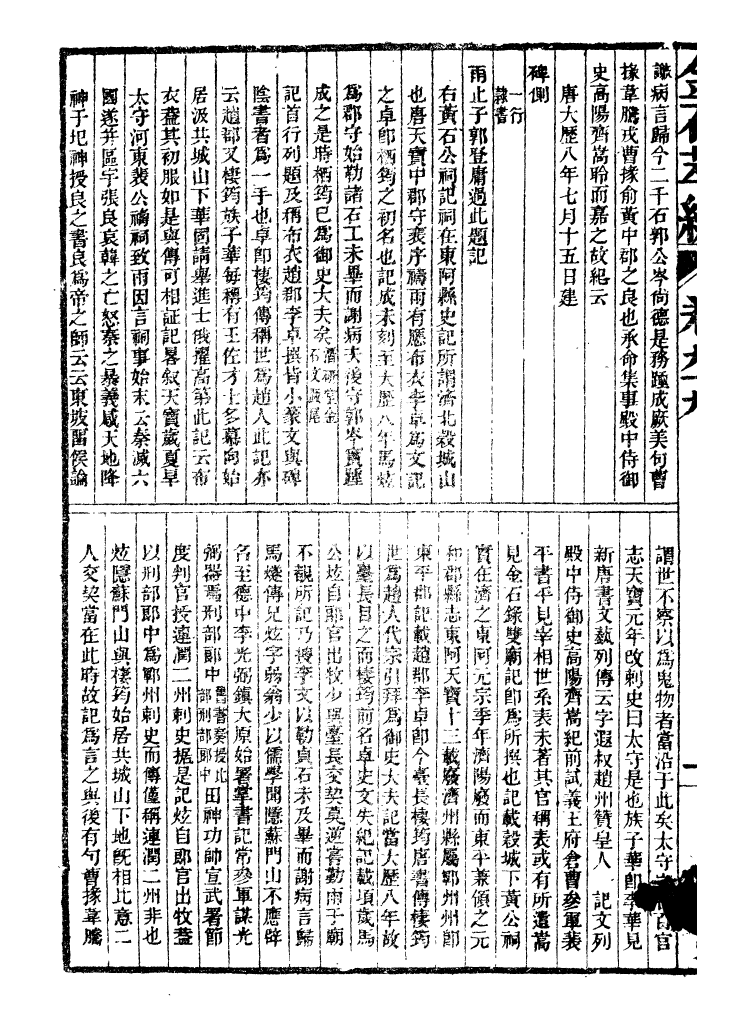 謝病言歸今二千石郭公岑尚德是務踵成厥美句曹
掾韋騰戎曹掾俞黃中郡之良也承命集事殿中侍御
史高陽齊嵩聆而嘉之故紀云
唐大歷八年七月十五日建
碑側
一行
隸書
雨止子郭登庸過此題記
右黃石公祠記祠在東阿縣史記所謂濟北穀城山
也唐天寶中郡守裴序禱雨有應布衣李卓為文記
之卓卽栖筠之初名也記成未刻至大歷八年馬炫
為郡守始勒諸石工未畢而謝病去後守郭岑實踵
成之是時栖筠已為御史大夫矣
石文跋尾
記首行列題及稱布衣趙郡李卓撰皆小篆文與碑
陰書者為一手也卓卽棲筠傳稱世為趙人此記亦
云趙郡又棲筠族子華每稱有王佐才士多慕向始
居汲共城山下華固請舉進士俄擢高第此記云布
衣蓋其初服如是與傳可相証記畧敘天寶歲夏旱
太守河東裴公禱祠致雨因言祠事始末云秦滅六
國遂并區宇張良哀韓之亡怒秦之暴義感天地降
神于圯神授良之書良為帝之師云云東坡留侯論
謂世不察以為鬼物者當沿于此矣太守 百官
志天寶元年改刺史曰太守是也族子華卽李華見
新唐書文藝列傳云字遐叔趙州贊皇人 記文列
殿中侍御史高陽齊嵩紀前試義王府倉曹參軍裴
平書平見宰相世系表未著其官稱表或有所遺嵩
見金石錄雙廟記卽為所撰也記載穀城下黃公祠
實在濟之東阿元宗季年濟陽廢而東平兼領之元
和郡縣志東阿天寶十三載廢濟州縣屬鄆州州卽
東平郡記載趙郡李卓卽今臺長棲筠唐書傳棲筠
世為趙人代宗引拜為御史大夫記當大歷八年故
以臺長目之而棲筠前名卓史文失紀記載項歲馬
公炫自郎官出牧少與臺長交契莫逆嘗勤雨于廟
不觀所記乃 李文以勒貞石未及畢而謝病言歸
馬燧傳兄炫字弱翁少以儒學聞隱蘇門山不應辟
名至德中李光弼鎮大原始署掌書記常參軍謀光
弼器焉刑部郎中
舊書奏授比
部刑部郎中
田神功帥宣武署節
度判官授連潤二州刺史据是記炫自郎官出牧蓋
以刑部郎中為鄆州刺史而傳僅稱連潤二州非也
炫隱蘇門山與棲筠始居共城山下地旣相比意二
人交契當在此時故記為言之與後有句曹掾韋騰